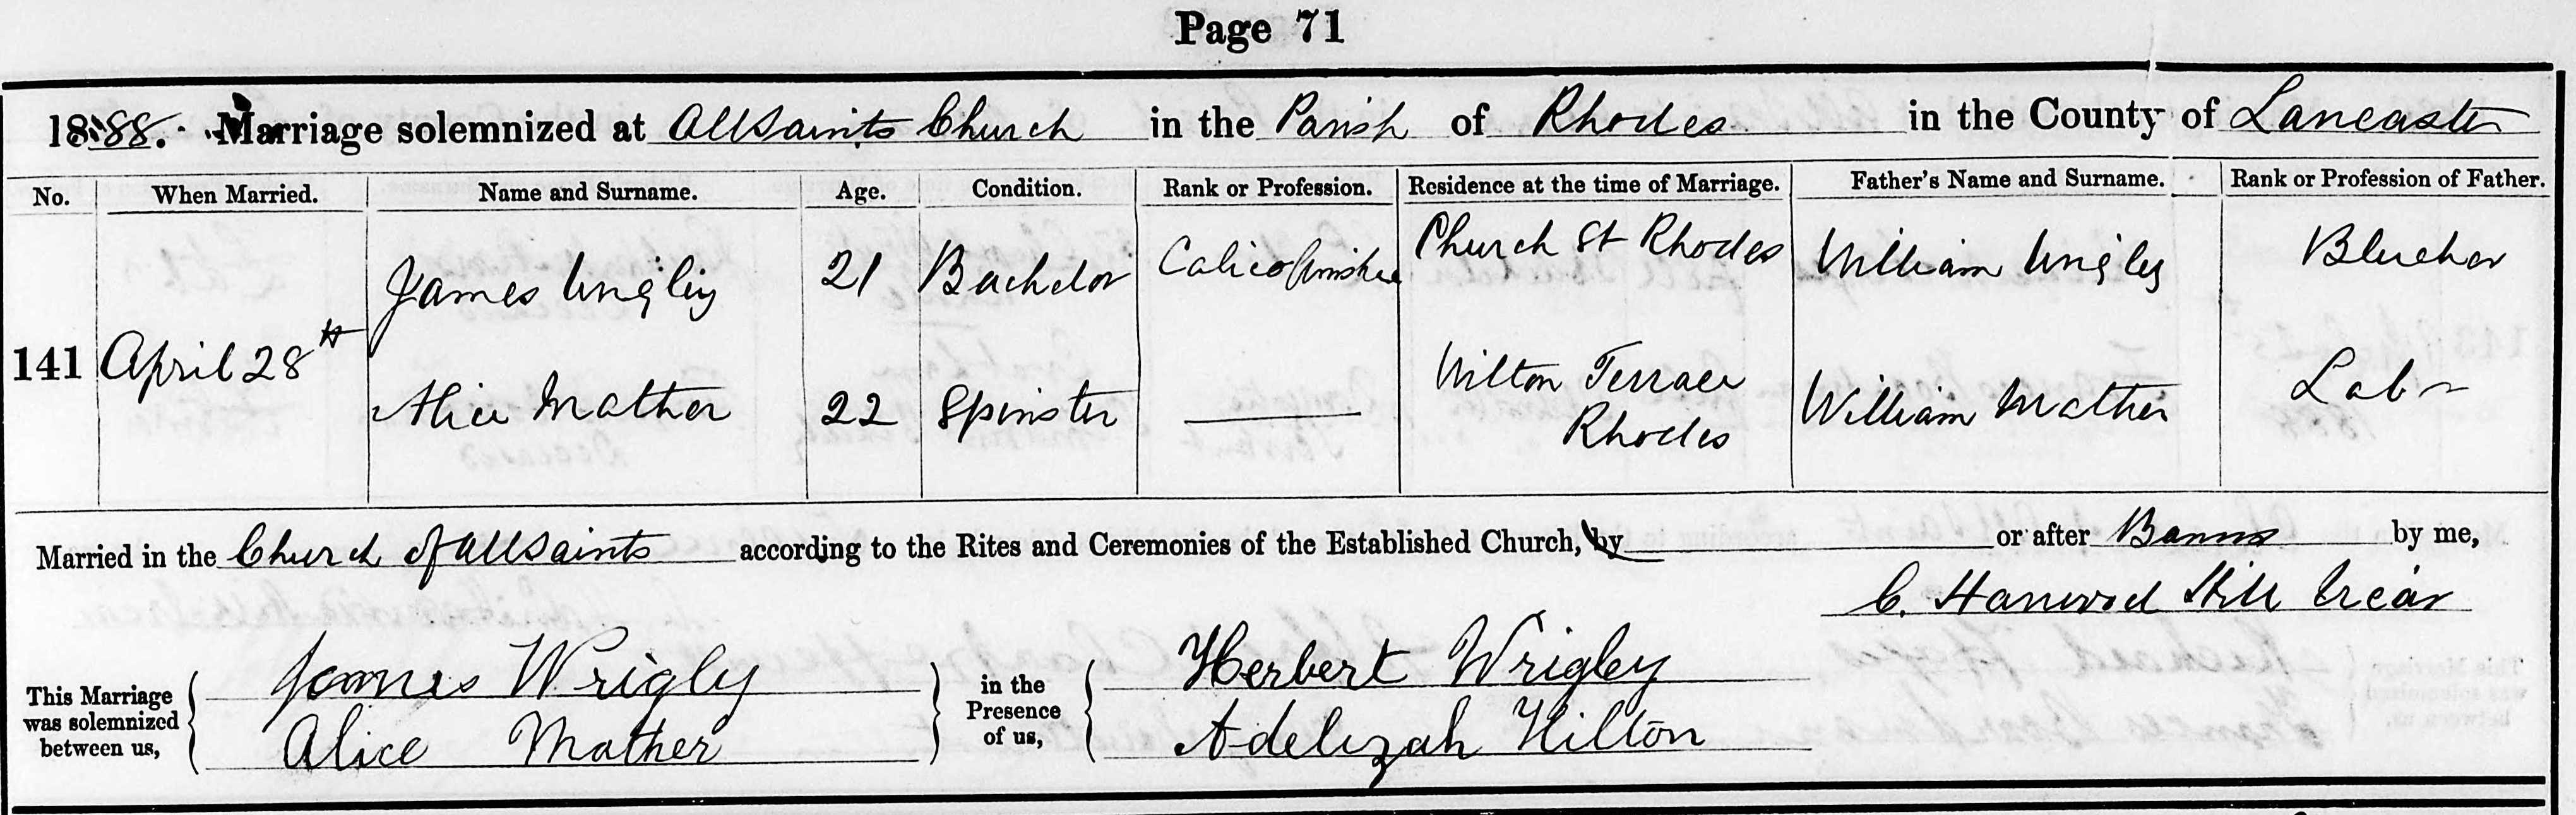 Page 71
1888. Marriage solemnized at All Saints Church in the Parish of Rhodes in the County of Lancaster
No. When Married. Name and Surname. Age. Condition. Rank or Profession. Residence at the time of Marriage. Father's Name and Surname. Rank or Profession of Father.
James Wrigley 21 Bachelor Calico finisher Church St Rhodes William Wrigley Bleacher
141 April 28th
Alice Mather 22 Spinster Wilton Terrace Rhodes William Mather Labr
Married in the Church of All Saints according to the Rites and Ceremonies of the Established Church, by or after Banns by me,
C. Hill Vicar
This Marriage was solemnized between us,
James Wrigly
Alice Mather
in the Presence of us,
Herbert Wrigley
Adelizah Hilton